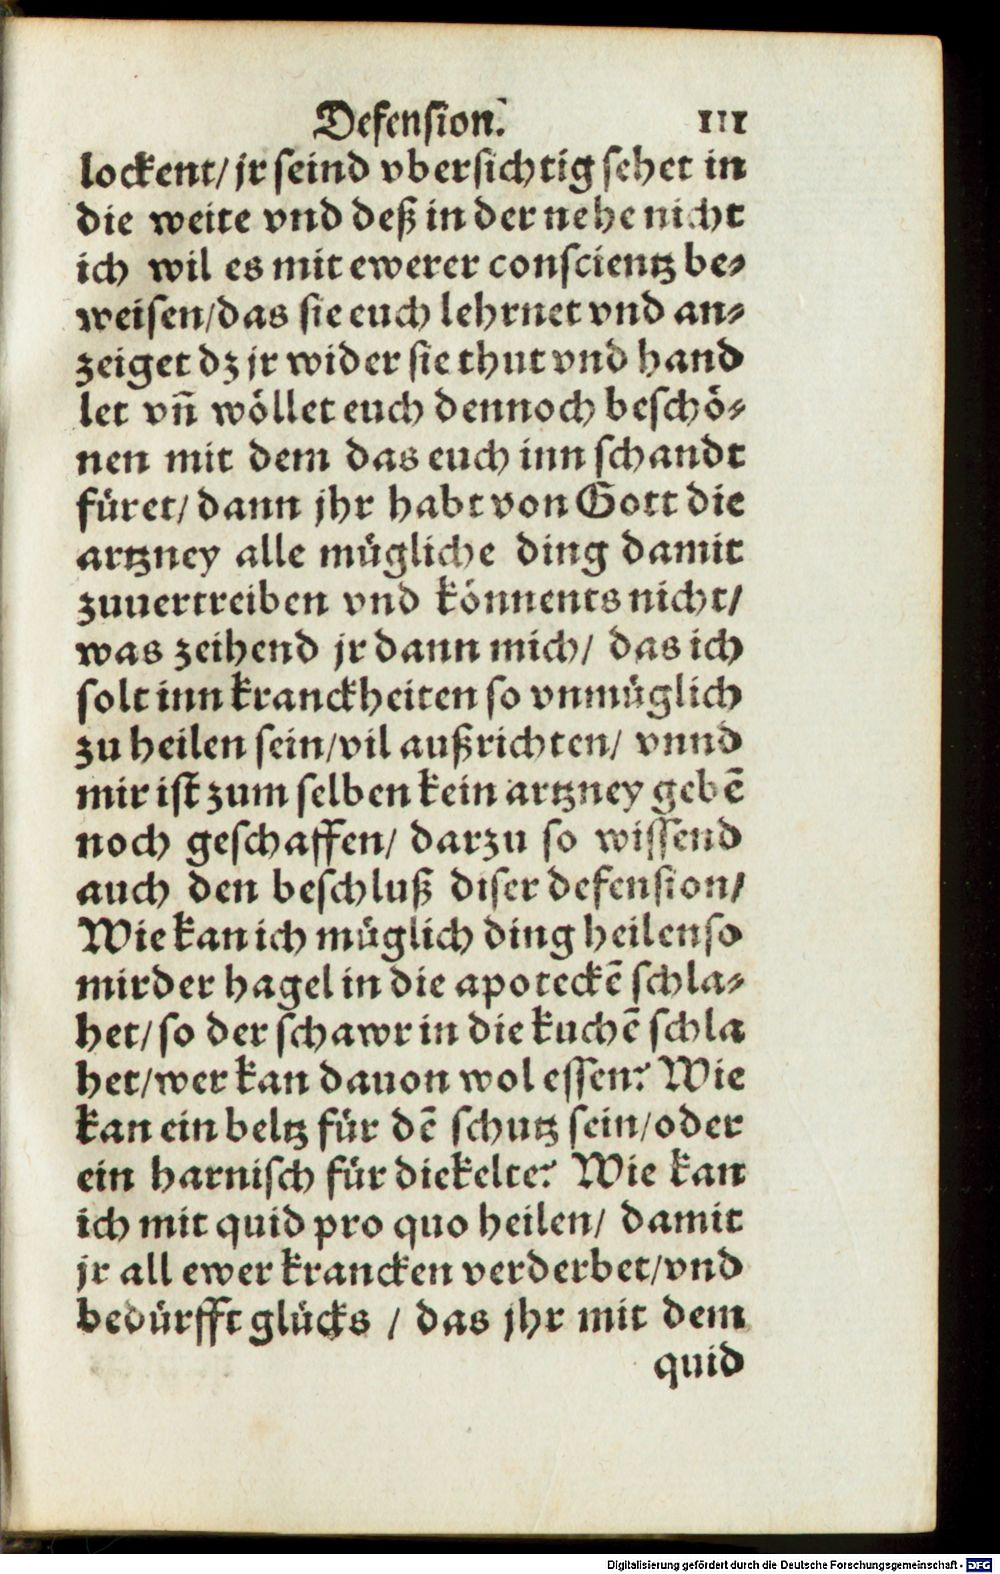 Defension. 111
lockent/ jr seind vbersichtig sehet in
die weite vnd deß in der nehe nicht
ich wil es mit ewerer conscientz be⸗
weisen/das sie euch lehrnet vnd an⸗
zeiget dz jr wider sie thut vnd hand
let vñ wöllet euch dennoch beschö⸗
nen mit dem das euch inn schandt
füret/ dann jhr habt von Gott die
artzney alle mügliche ding damit
zuuertreiben vnd könnents nicht/
was zeihend jr dann mich/ das ich
solt inn kranckheiten so vnmüglich
zu heilen sein/vil außrichten/ vnnd
mir ist zum selben kein artzney gebē
noch geschaffen/ darzu so wissend
auch den beschluß diser defension/
Wie kan ich müglich ding heilen so
mir der hagel in die apoteckē schla⸗
het/ so der schawr in die kuchē schla
het/wer kan dauon wol essen? Wie
kan ein beltz für dē schutz sein/oder
ein harnisch für die kelte? Wie kan
ich mit quid pro quo heilen/ damit
jr all ewer krancken verderbet/vnd
bedürfft glücks / das jhr mit dem
quid
Digitalisierung gefördert durch die Deutsche Forschungsgemeinschaft - DFG